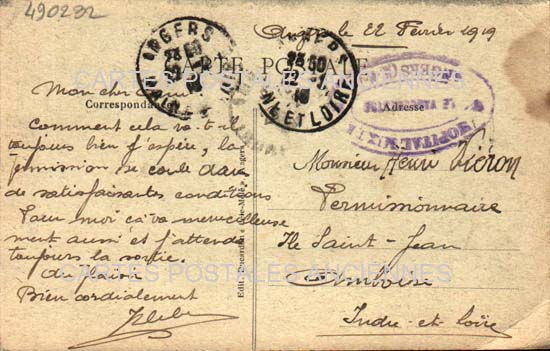 490232
Angers le 22 Février 1919
CARTE POSTALE
ANGERS
MAINE ET LOIRE
Correspondance
Adresse
HOPITAL MIXTE
CARTES POSTALES ANCIENNES
Mon cher
Comment cela va-t-il
toujours bien j'espère, la
permission se coule dans
de satisfaisantes conditions
Pour moi ça va merveilleuse
ment aussi et j'attends
toujours la sortie.
Bien cordialement
Monsieur Henri Piéron
Permissionnaire
Ile Saint-Jean
Amboise
Indre-et-Loire
CARTES POSTALES ANCIENNES